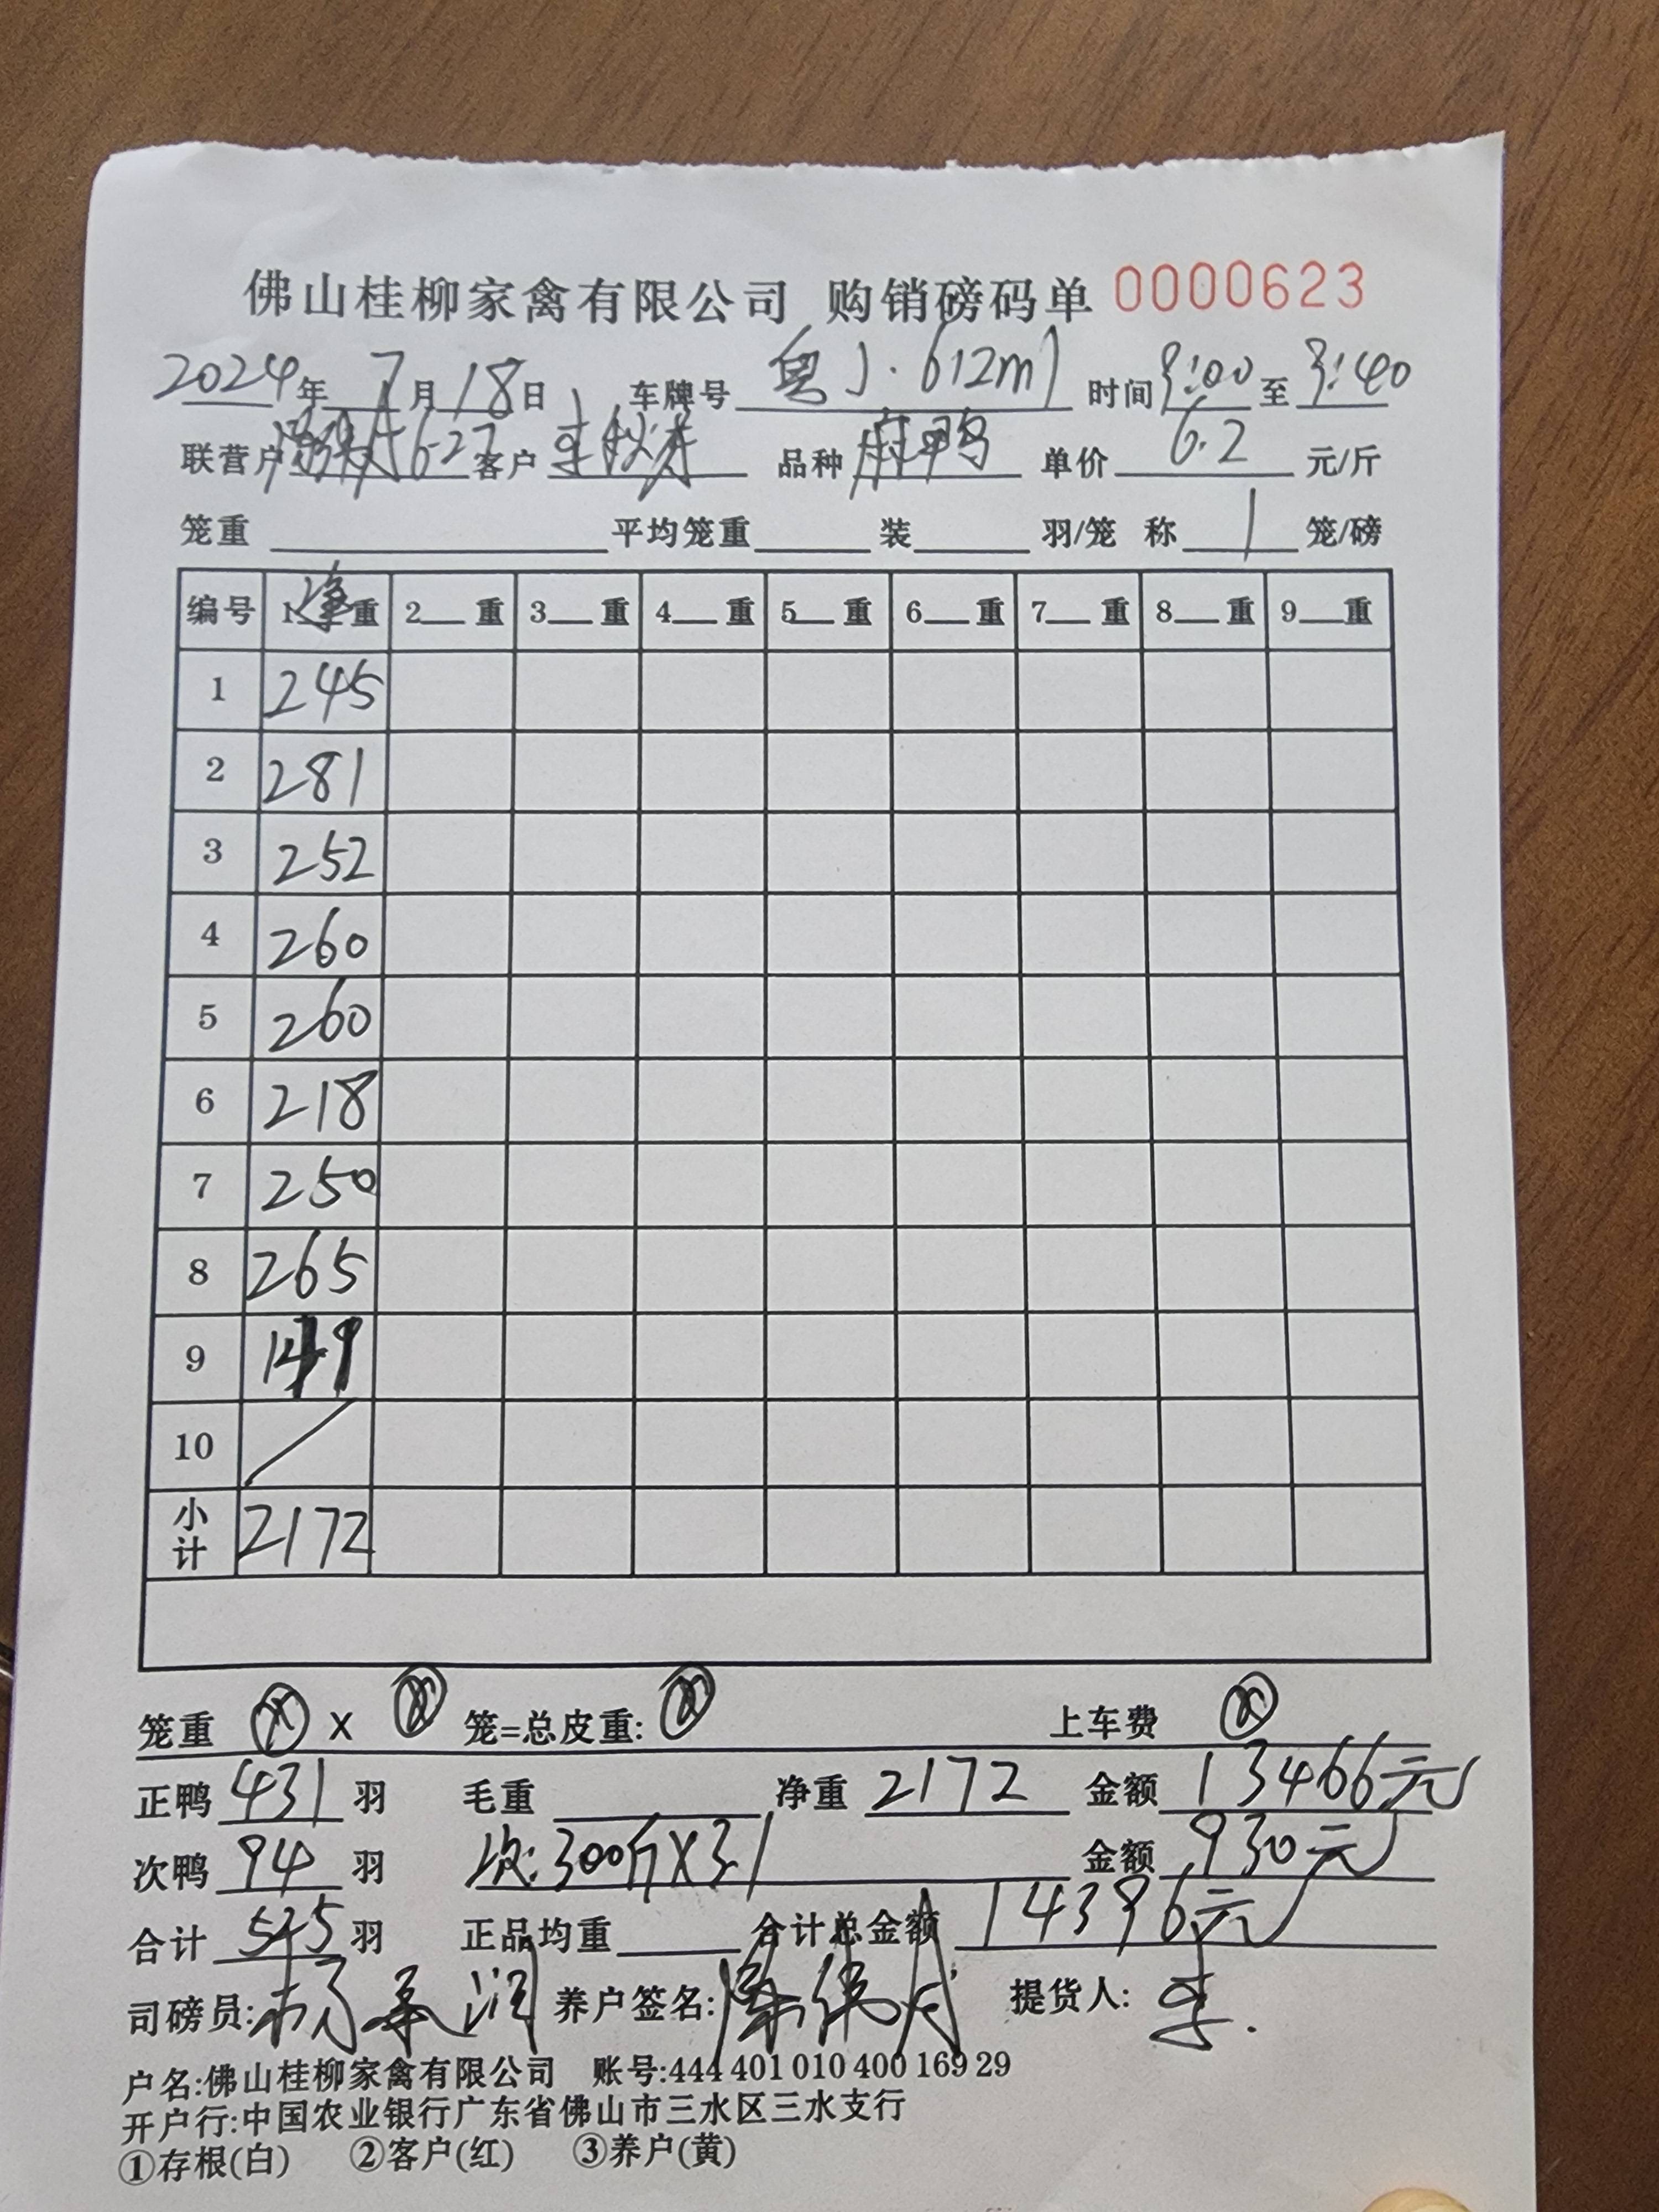 佛山桂柳家禽有限公司 购销磅码单 0000623
2024年 7月18日 车牌号 粤J·612m1 时间 9:00 至 9:40
联营户 6-27 客户 李秋 品种 麻鸭 单价 6.2 元/斤
笼重 平均笼重 装 羽/笼 称 1 笼/磅
编号 1净重 2 重 3 重 4 重 5 重 6 重 7 重 8 重 9 重
1 245
2 281
3 252
4 260
5 260
6 218
7 250
8 265
9 141
10
小计 2172
笼重 ⊗ X ⊗ 笼=总皮重: ⊗ 上车费 ⊗
正鸭 431 羽 毛重 净重 2172 金额 13466元
次鸭 94 羽 次:300斤X3.1 金额 930元
合计 525 羽 正品均重 合计总金额 14396元
司磅员: 养户签名: 提货人: 李.
户名:佛山桂柳家禽有限公司 账号:444 401 010 400 169 29
开户行:中国农业银行广东省佛山市三水区三水支行
①存根(白) ②客户(红) ③养户(黄)